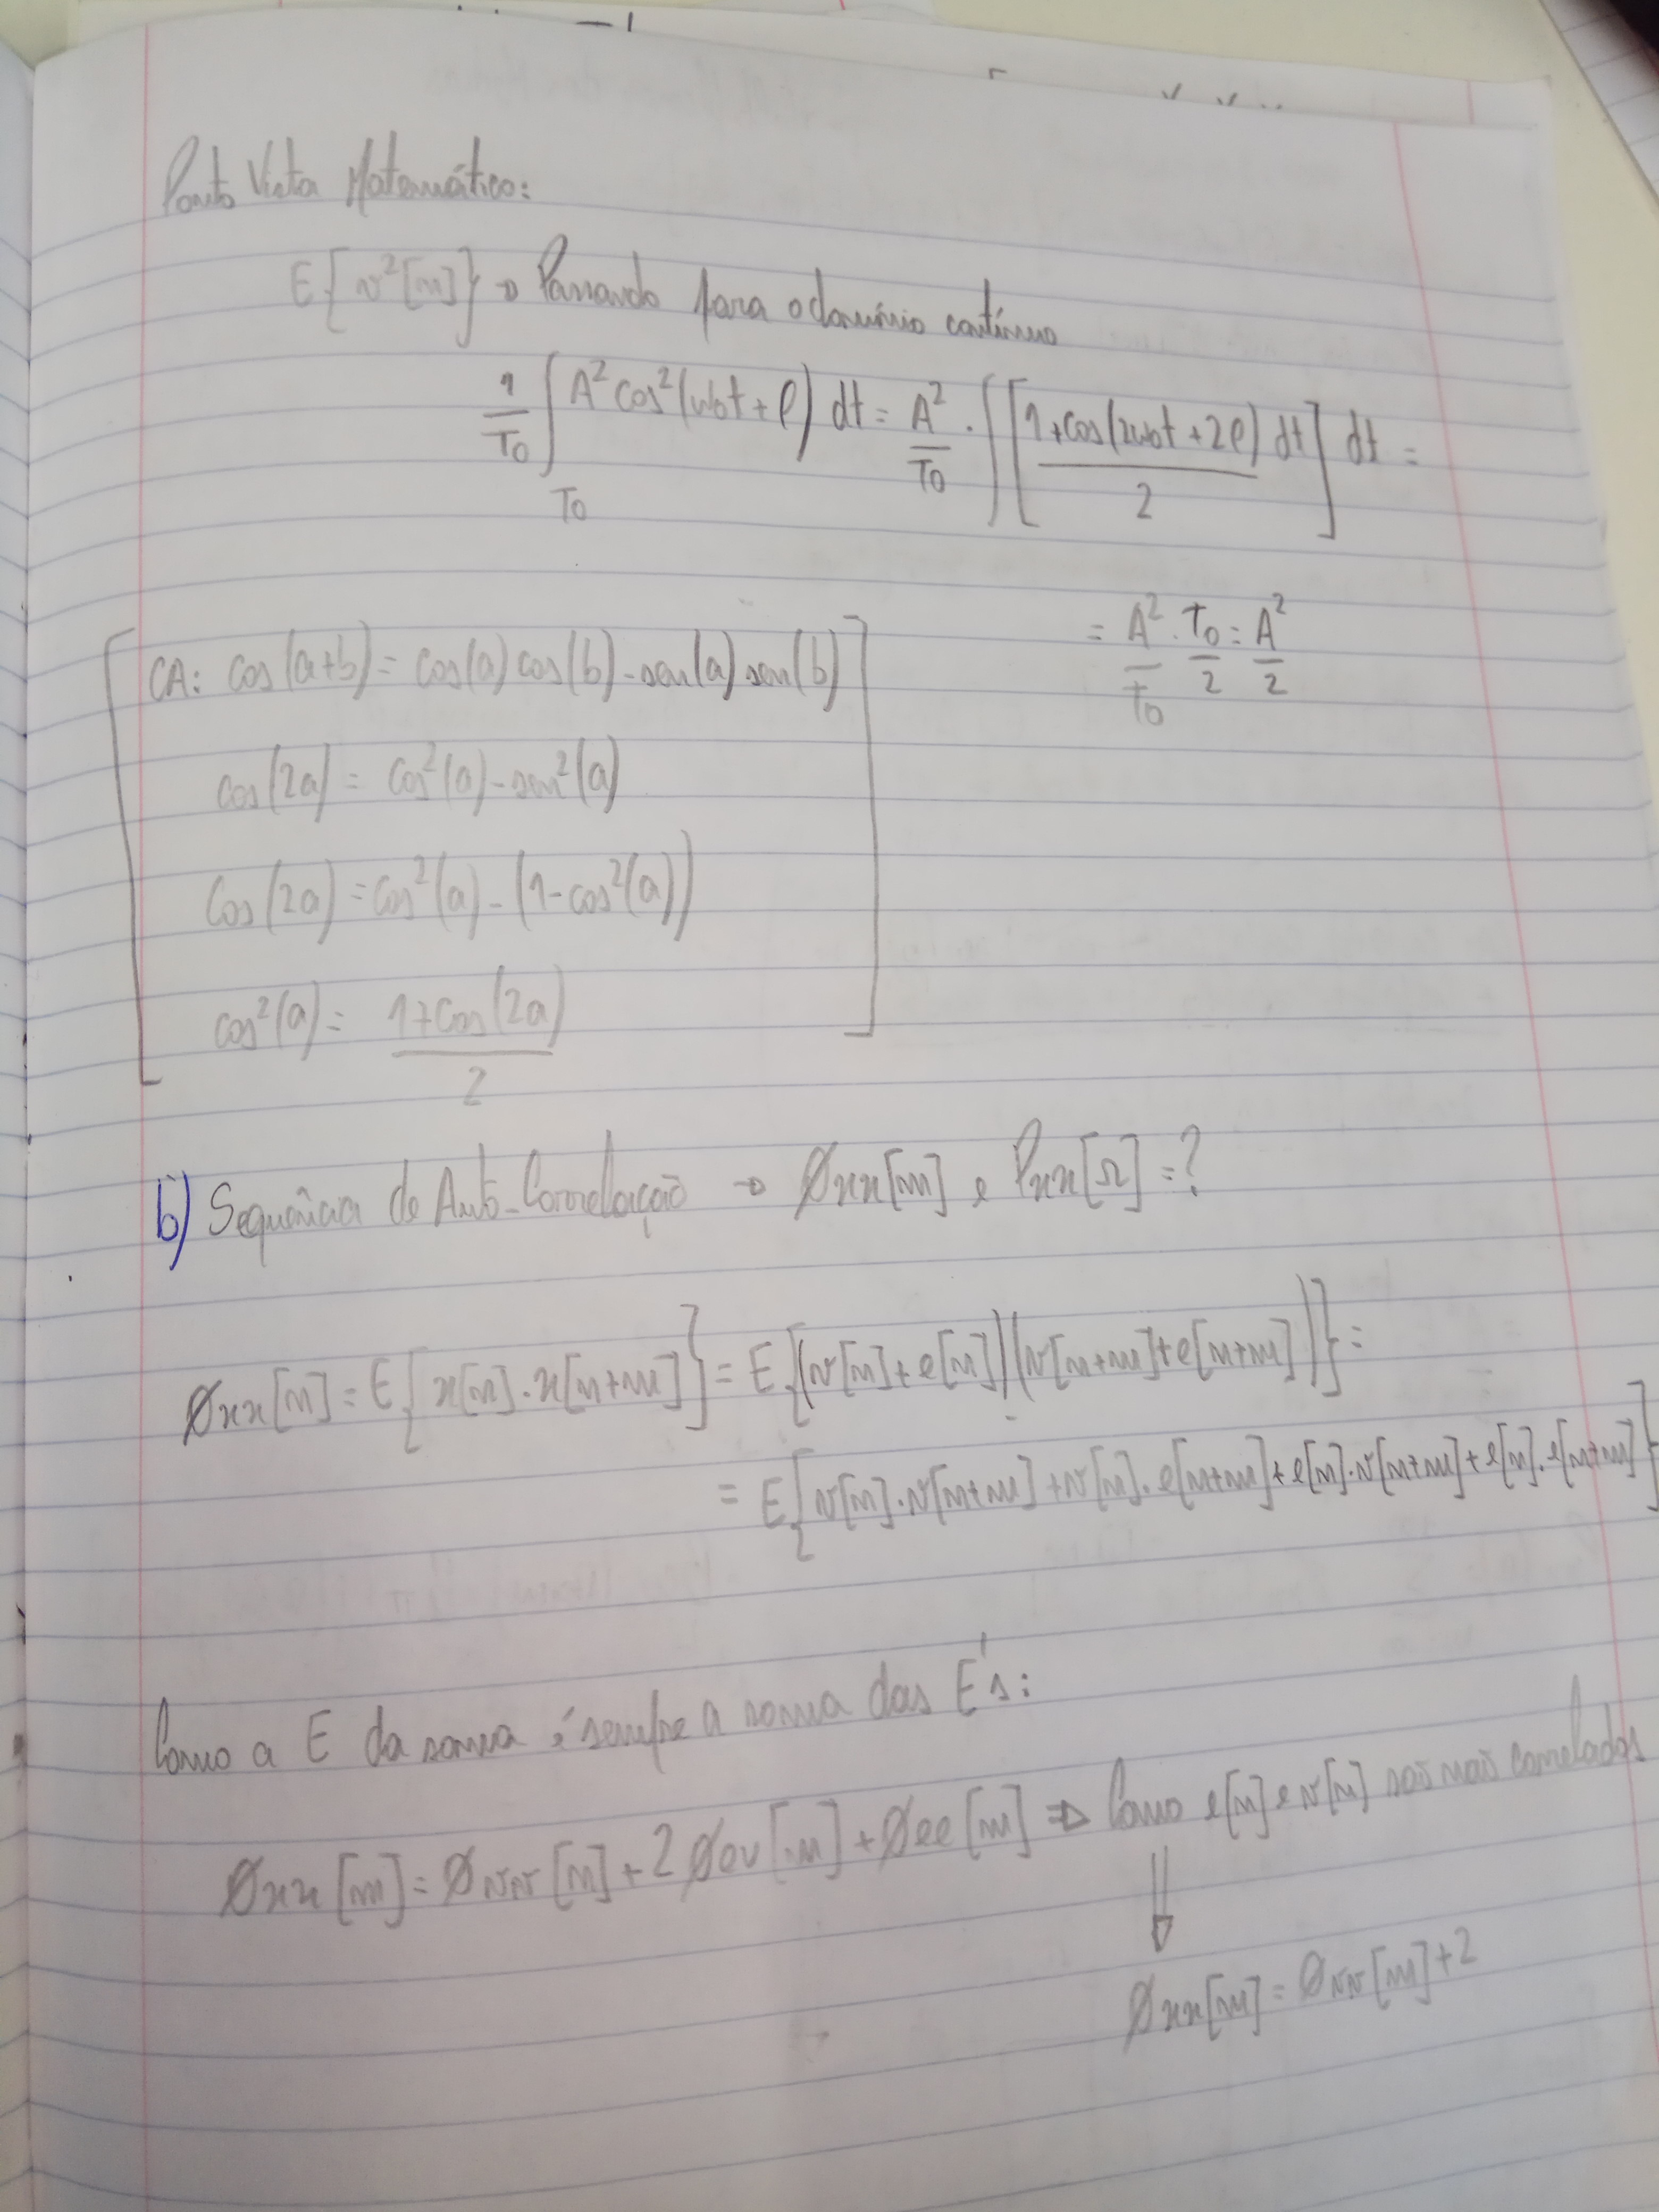 Ponto Vista Matemático:
E{v²[n]} → Passando para o domínio contínuo
1/T0 ∫T0 A² cos²(w0t + φ) dt = A²/T0 · ∫ [(1+cos(2w0t + 2φ) dt)/2] dt =
= A²/T0 · T0/2 = A²/2
CA: cos(a+b) = cos(a) cos(b) - sen(a) sen(b)
cos(2a) = cos²(a) - sen²(a)
cos(2a) = cos²(a) - (1 - cos²(a))
cos²(a) = (1+cos(2a))/2
b) Sequência de Auto-Correlação → Øxx[m] e Pxx[Ω] = ?
Øxx[m] = E{x[n]·x[n+m]} = E{(v[n]+e[n])(v[n+m]+e[n+m])} =
= E{v[n]·v[n+m] + v[n]·e[n+m] + e[n]·v[n+m] + e[n]·e[n+m]}
Como a E da soma é sempre a soma das E's:
Øxx[m] = Øvv[m] + 2Øev[m] + Øee[m] ⇒ Como e[n] e v[n] são não correlados
⇓
Øxx[m] = Øvv[m] + 2